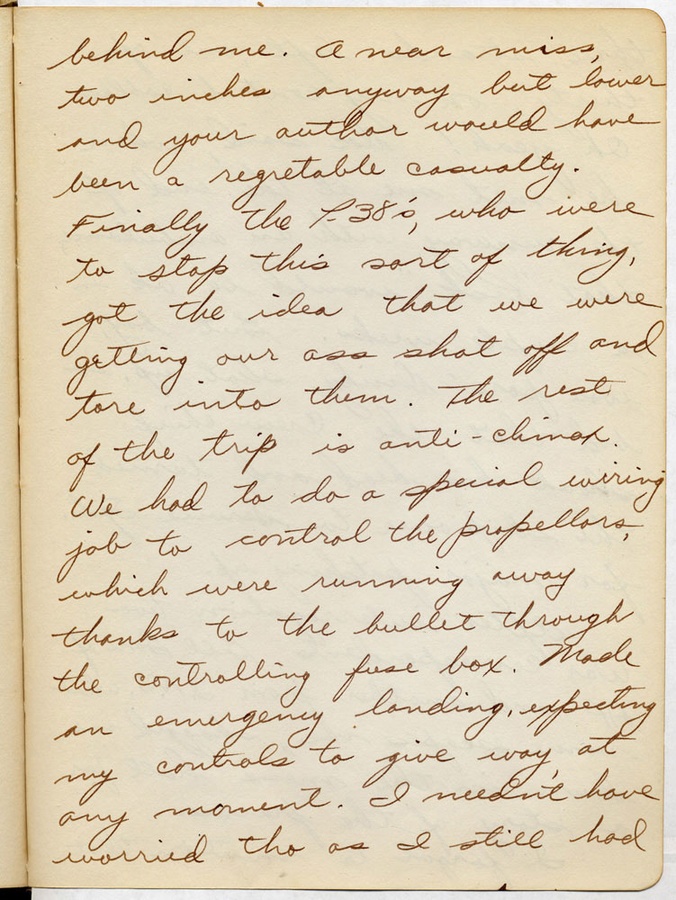 behind me. A near miss,
two inches anyway but lower
and your author would have
been a regretable casualty.
Finally the P-38's, who were
to stop this sort of thing,
got the idea that we were
getting our ass shot off and
tore into them. The rest
of the trip is anti-climax.
We had to do a special wiring
job to control the propellors,
which were running away
thanks to the bullet through
the controlling fuse box. Made
an emergency landing, expecting
my controls to give way at
any moment. I needn't have
worried tho as I still had